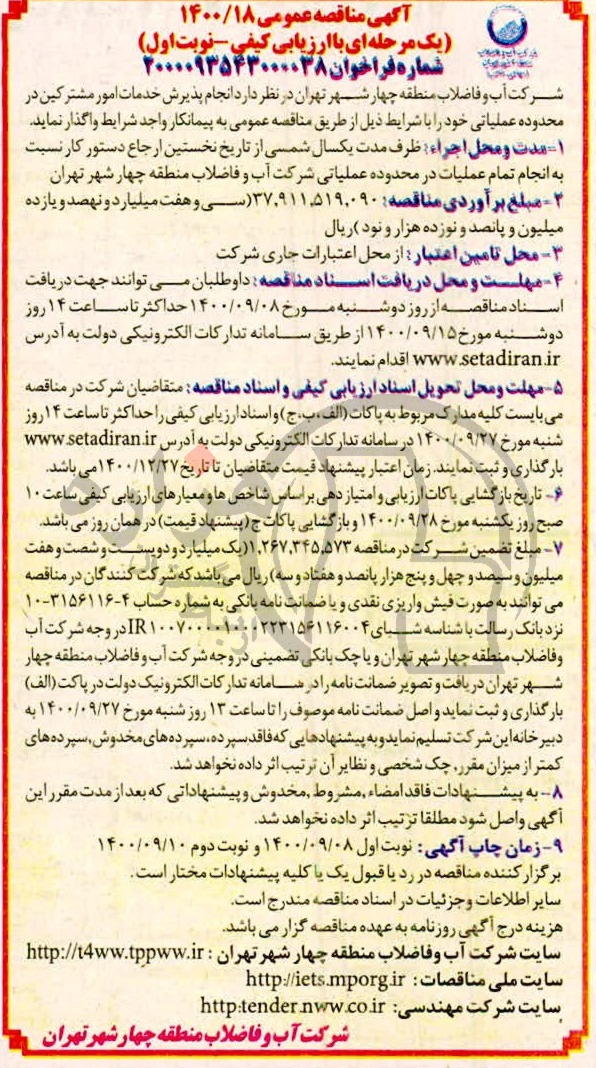 آگهی مناقصه عمومی ۱۴۰۰/۱۸
(یک مرحله ای با ارزیابی کیفی - نوبت اول)
شماره فراخوان ۲۰۰۰۰۹۳۵۴۳۰۰۰۰۳۸
شرکت آب و فاضلاب منطقه چهار شهر تهران در نظر دارد انجام پذیرش خدمات امور مشترکین در
محدوده عملیاتی خود را با شرایط ذیل از طریق مناقصه عمومی به پیمانکار واجد شرایط واگذار نماید.
۱-مدت و محل اجراء: ظرف مدت یکسال شمسی از تاریخ نخستین ارجاع دستور کار نسبت
به انجام تمام عملیات در محدوده عملیاتی شرکت آب و فاضلاب منطقه چهار شهر تهران
۲-مبلغ برآوردی مناقصه: ۳۷,۹۱۱,۵۱۹,۰۹۰(سی و هفت میلیارد و نهصد و یازده
میلیون و پانصد و نوزده هزار و نود )ریال
۳-محل تامین اعتبار: از محل اعتبارات جاری شرکت
۴-مهلت و محل دریافت اسناد مناقصه: داوطلبان می توانند جهت دریافت
اسناد مناقصه از روز دوشنبه مورخ ۱۴۰۰/۰۹/۰۸ حداکثر تا ساعت ۱۴ روز
دوشنبه مورخ ۱۴۰۰/۰۹/۱۵ از طریق سامانه تدارکات الکترونیکی دولت به آدرس
www.setadiran.ir اقدام نمایند.
۵-مهلت و محل تحویل اسناد ارزیابی کیفی و اسناد مناقصه: متقاضیان شرکت در مناقصه
می بایست کلیه مدارک مربوط به پاکات (الف،ب،ج) و اسناد ارزیابی کیفی را حداکثر تا ساعت ۱۴ روز
شنبه مورخ ۱۴۰۰/۰۹/۲۷ در سامانه تدارکات الکترونیکی دولت به آدرس www.setadiran.ir
بارگذاری و ثبت نمایند. زمان اعتبار پیشنهاد قیمت متقاضیان تا تاریخ ۱۴۰۰/۱۲/۲۷ می باشد.
۶- تاریخ بازگشایی پاکات ارزیابی و امتیاز دهی بر اساس شاخص ها و معیارهای ارزیابی کیفی ساعت ۱۰
صبح روز یکشنبه مورخ ۱۴۰۰/۰۹/۲۸ و بازگشایی پاکات ج (پیشنهاد قیمت) در همان روز می باشد.
۷- مبلغ تضمین شرکت در مناقصه ۱,۲۶۷,۳۴۵,۵۷۳(یک میلیارد و دویست و شصت و هفت
میلیون و سیصد و چهل و پنج هزار پانصد و هفتاد و سه) ریال می باشد که شرکت کنندگان در مناقصه
می توانند به صورت فیش واریزی نقدی و یا ضمانت نامه بانکی به شماره حساب ۴-۳۱۵۶۱۱۶-۱۰
نزد بانک رسالت با شناسه شبای در وجه شرکت آب
وفاضلاب منطقه چهار شهر تهران و یا چک بانکی تضمینی در وجه شرکت آب و فاضلاب منطقه چهار
شهر تهران دریافت و تصویر ضمانت نامه را در سامانه تدارکات الکترونیک دولت در پاکت (الف)
بارگذاری و ثبت نماید و اصل ضمانت نامه موصوف را تا ساعت ۱۳ روز شنبه مورخ ۱۴۰۰/۰۹/۲۷ به
دبیر خانه این شرکت تسلیم نماید و به پیشنهادهایی که فاقد سپرده،سپرده های مخدوش، سپرده های
کمتر از میزان مقرر، چک شخصی و نظایر آن ترتیب اثر داده نخواهد شد.
۸- به پیشنهادات فاقد امضاء، مشروط، مخدوش و پیشنهاداتی که بعد از مدت مقرر این
آگهی واصل شود مطلقا ترتیب اثر داده نخواهد شد.
۹-زمان چاپ آگهی: نوبت اول ۱۴۰۰/۰۹/۰۸ و نوبت دوم ۱۴۰۰/۰۹/۱۰
برگزار کننده مناقصه در رد یا قبول یک یا کلیه پیشنهادات مختار است.
سایر اطلاعات و جزئیات در اسناد مناقصه مندرج است.
هزینه درج آگهی روزنامه به عهده مناقصه گزار می باشد.
سایت شرکت آب وفاضلاب منطقه چهار شهر تهران : http://t4ww.tppww.ir
سایت ملی مناقصات: http://iets.mporg.ir
سایت شرکت مهندسی: http:tender.nww.co.ir
شرکت آب و فاضلاب منطقه چهار شهر تهران